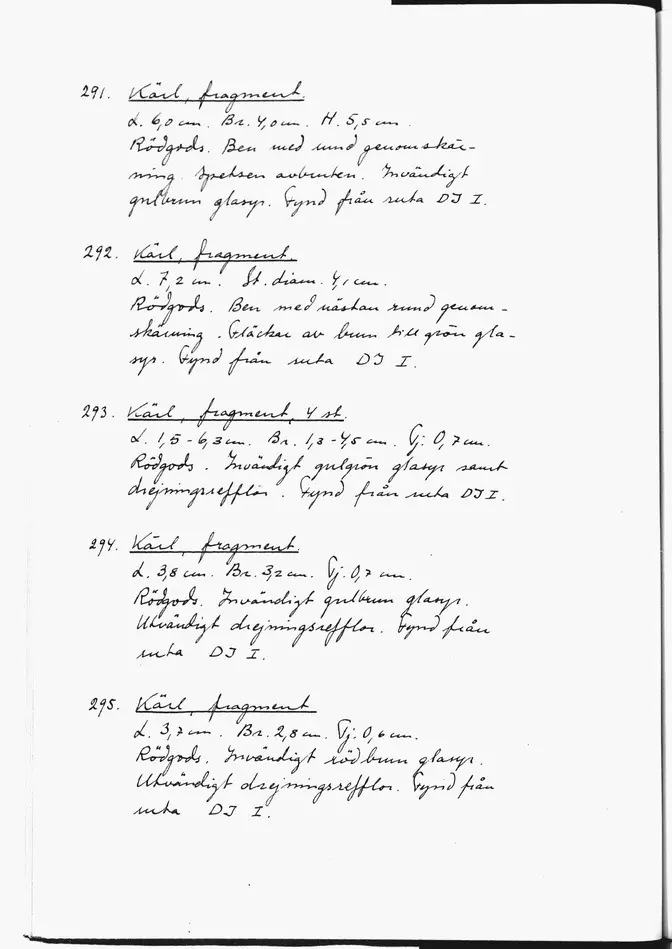 291. Kärl, fragment.
L. 6,0 cm. Br. 4,0 cm. H. 5,5 cm.
Rödgods. Ben med rund genomskär-
ning. Spetsen avbruten. Invändigt
gulbrun glasyr. Fynd från ruta DJ I.
292. Kärl, fragment.
L. 7,2 cm. St. diam. 4,1 cm.
Rödgods. Ben med nästan rund genom-
skärning. Fläckar av brun till grön gla-
syr. Fynd från ruta DJ I.
293. Kärl, fragment, 4 st.
L. 1,5 - 6,3 cm. Br. 1,3 - 4,5 cm. Tj. 0,7 cm.
Rödgods. Invändigt gulgrön glasyr samt
drejningsrefflor. Fynd från ruta DJ I.
294. Kärl, fragment.
L. 3,8 cm. Br. 3,2 cm. Tj. 0,7 cm.
Rödgods. Invändigt gulbrun glasyr.
Utvändigt drejningsrefflor. Fynd från
ruta DJ I.
295. Kärl, fragment
L. 3,7 cm. Br. 2,8 cm. Tj. 0,6 cm.
Rödgods. Invändigt rödbrun glasyr.
Utvändigt drejningsrefflor. Fynd från
ruta DJ I.